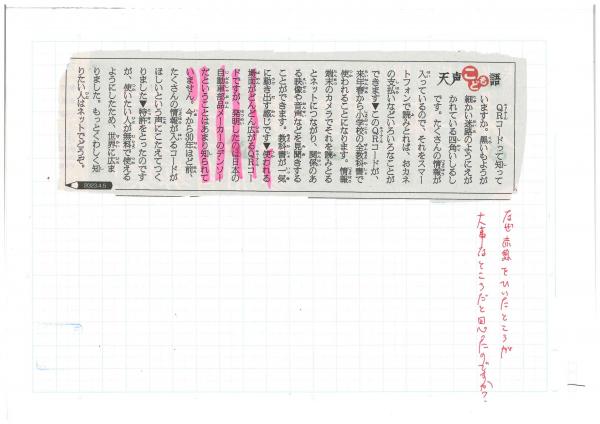 天声こども語
QRコードって知って
いますか。黒いもようが
細かい迷路のようにえが
かれている四角いしるし
です。たくさんの情報が
入っているので、それをスマー
トフォンで読みとれば、おカネ
の支払いなどいろいろなことが
できます▼このQRコードが、
来年春から小学校の全教科書で
使われることになります。情報
端末のカメラでそれを読みとる
とネットにつながり、関係のあ
る映像や音声などを見聞きする
ことができます。教科書が一気
に動き出す感じです▼使われる
場面がどんどん広がるQRコー
ドですが、発明したのは日本の
自動車部品メーカーのデンソー
だということはあまり知られて
いません。今から30年ほど前、
たくさんの情報が入るコードが
ほしいという声にこたえてつく
りました▼特許をとったのです
が、使いたい人が無料で使える
ようにしたため、世界に広ま
りました。もっとくわしく知
りたい人はネットでどうぞ。
2023.4.5
なぜ赤線をひいたところが
大事なところだと思ったのですか?